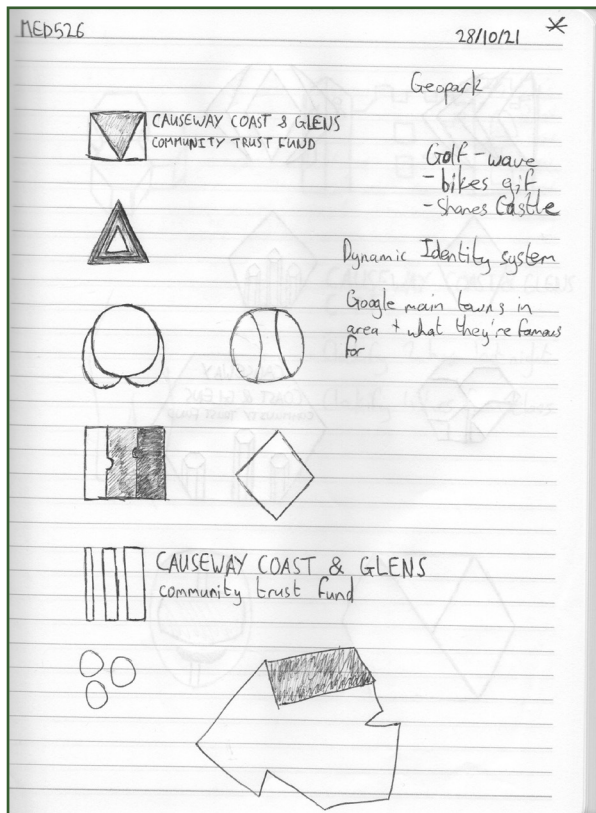 MED526
28/10/21
Geopark
CAUSEWAY COAST & GLENS
COMMUNITY TRUST FUND
Golf - wave
- bikes gif
- Shanes Castle
Dynamic Identity system
Google main towns in
area + what they're famous
for
CAUSEWAY COAST & GLENS
community trust fund